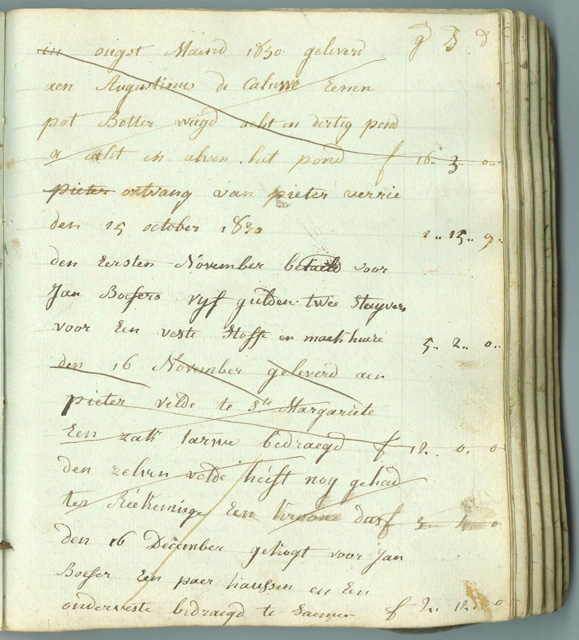 in ougst Maend 1830 geleverd
aen Augustinus de Caluwe Eenen
pot Botter weegd acht en dertig pond
a acht en alven het pond f 16 3 0
pieter ontvang van pieter verrie
den 15 october 1830 1 .. 15 .. 9
den Eersten November betaeld voor
Jan Boesers vyf gulden twee stuyvers
voor Een veste Stoffe en maek huere 5 .. 2 .. 0
den 16 November geleverd aen
pieter velde te Ste Margariete
Een zak tarwe bedraegd f 12 .. 0 .. 0
den zelven velde heeft nog gehad
ter Reekeninge Een kroone f 0
den 16 December gekogt voor Jan
Boeser Een paer kaussen en Een
onderveste bedraegd te Saemen f 2 .. 18 .. 0